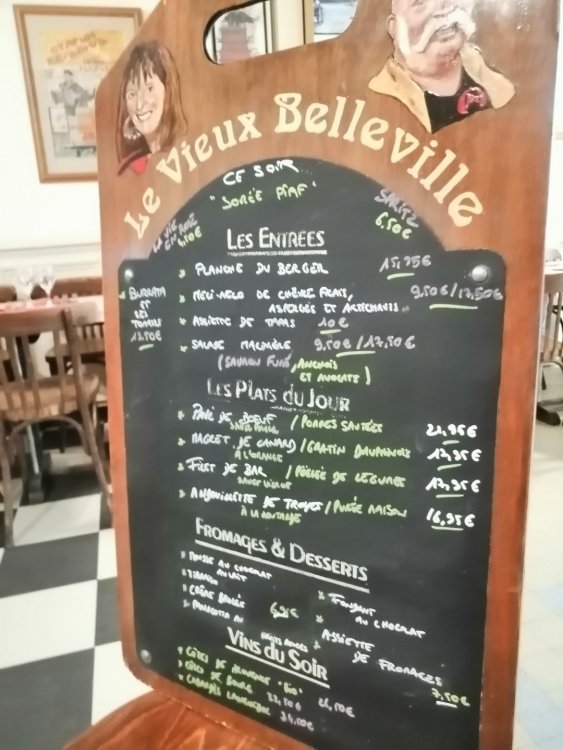 Le Vieux Belleville
CE SOIR
"SORÉE PIAF"
LA VIE
EN ROSE
SPRITZ
6,50€
LES ENTREES
PLANCHE DU BERGER 15,95€
BURRATA
ET
SES
TOMATES
13,50€
MELI-MELO DE CHÈVRE FRAIS, 9,50€/17,50€
ASPERGES ET ARTICHAUTS
ASSIETTE DE TAPAS 10€
SALADE 9,50€/17,50€
(SAUMON FUMÉ, ANCHOIS
ET AVOCATS)
LES PLATS DU JOUR
PAVÉ DE BOEUF / POMMES SAUTÉES 21,95€
MAGRET DE CANARD / GRATIN DAUPHINOIS 17,95€
À L'ORANGE
FILET DE BAR / POÊLÉE DE LÉGUMES 17,95€
ANDOUILLETTE DE TROYES / PURÉE MAISON 16,95€
À LA MOUTARDE
FROMAGES & DESSERTS
MOUSSE AU CHOCOLAT
AU LAIT
TIRAMISU
CRÈME BRULÉE
PANACOTTA AU
FRUITS ROUGES
6,95€
FONDANT
AU CHOCOLAT
ASSIETTE
DE FROMAGES
7,50€
VINS DU SOIR
CÔTES DE PROVENCE "BIO"
CÔTES DE BOURG 22,50€
CABARDÈS LANGUEDOC